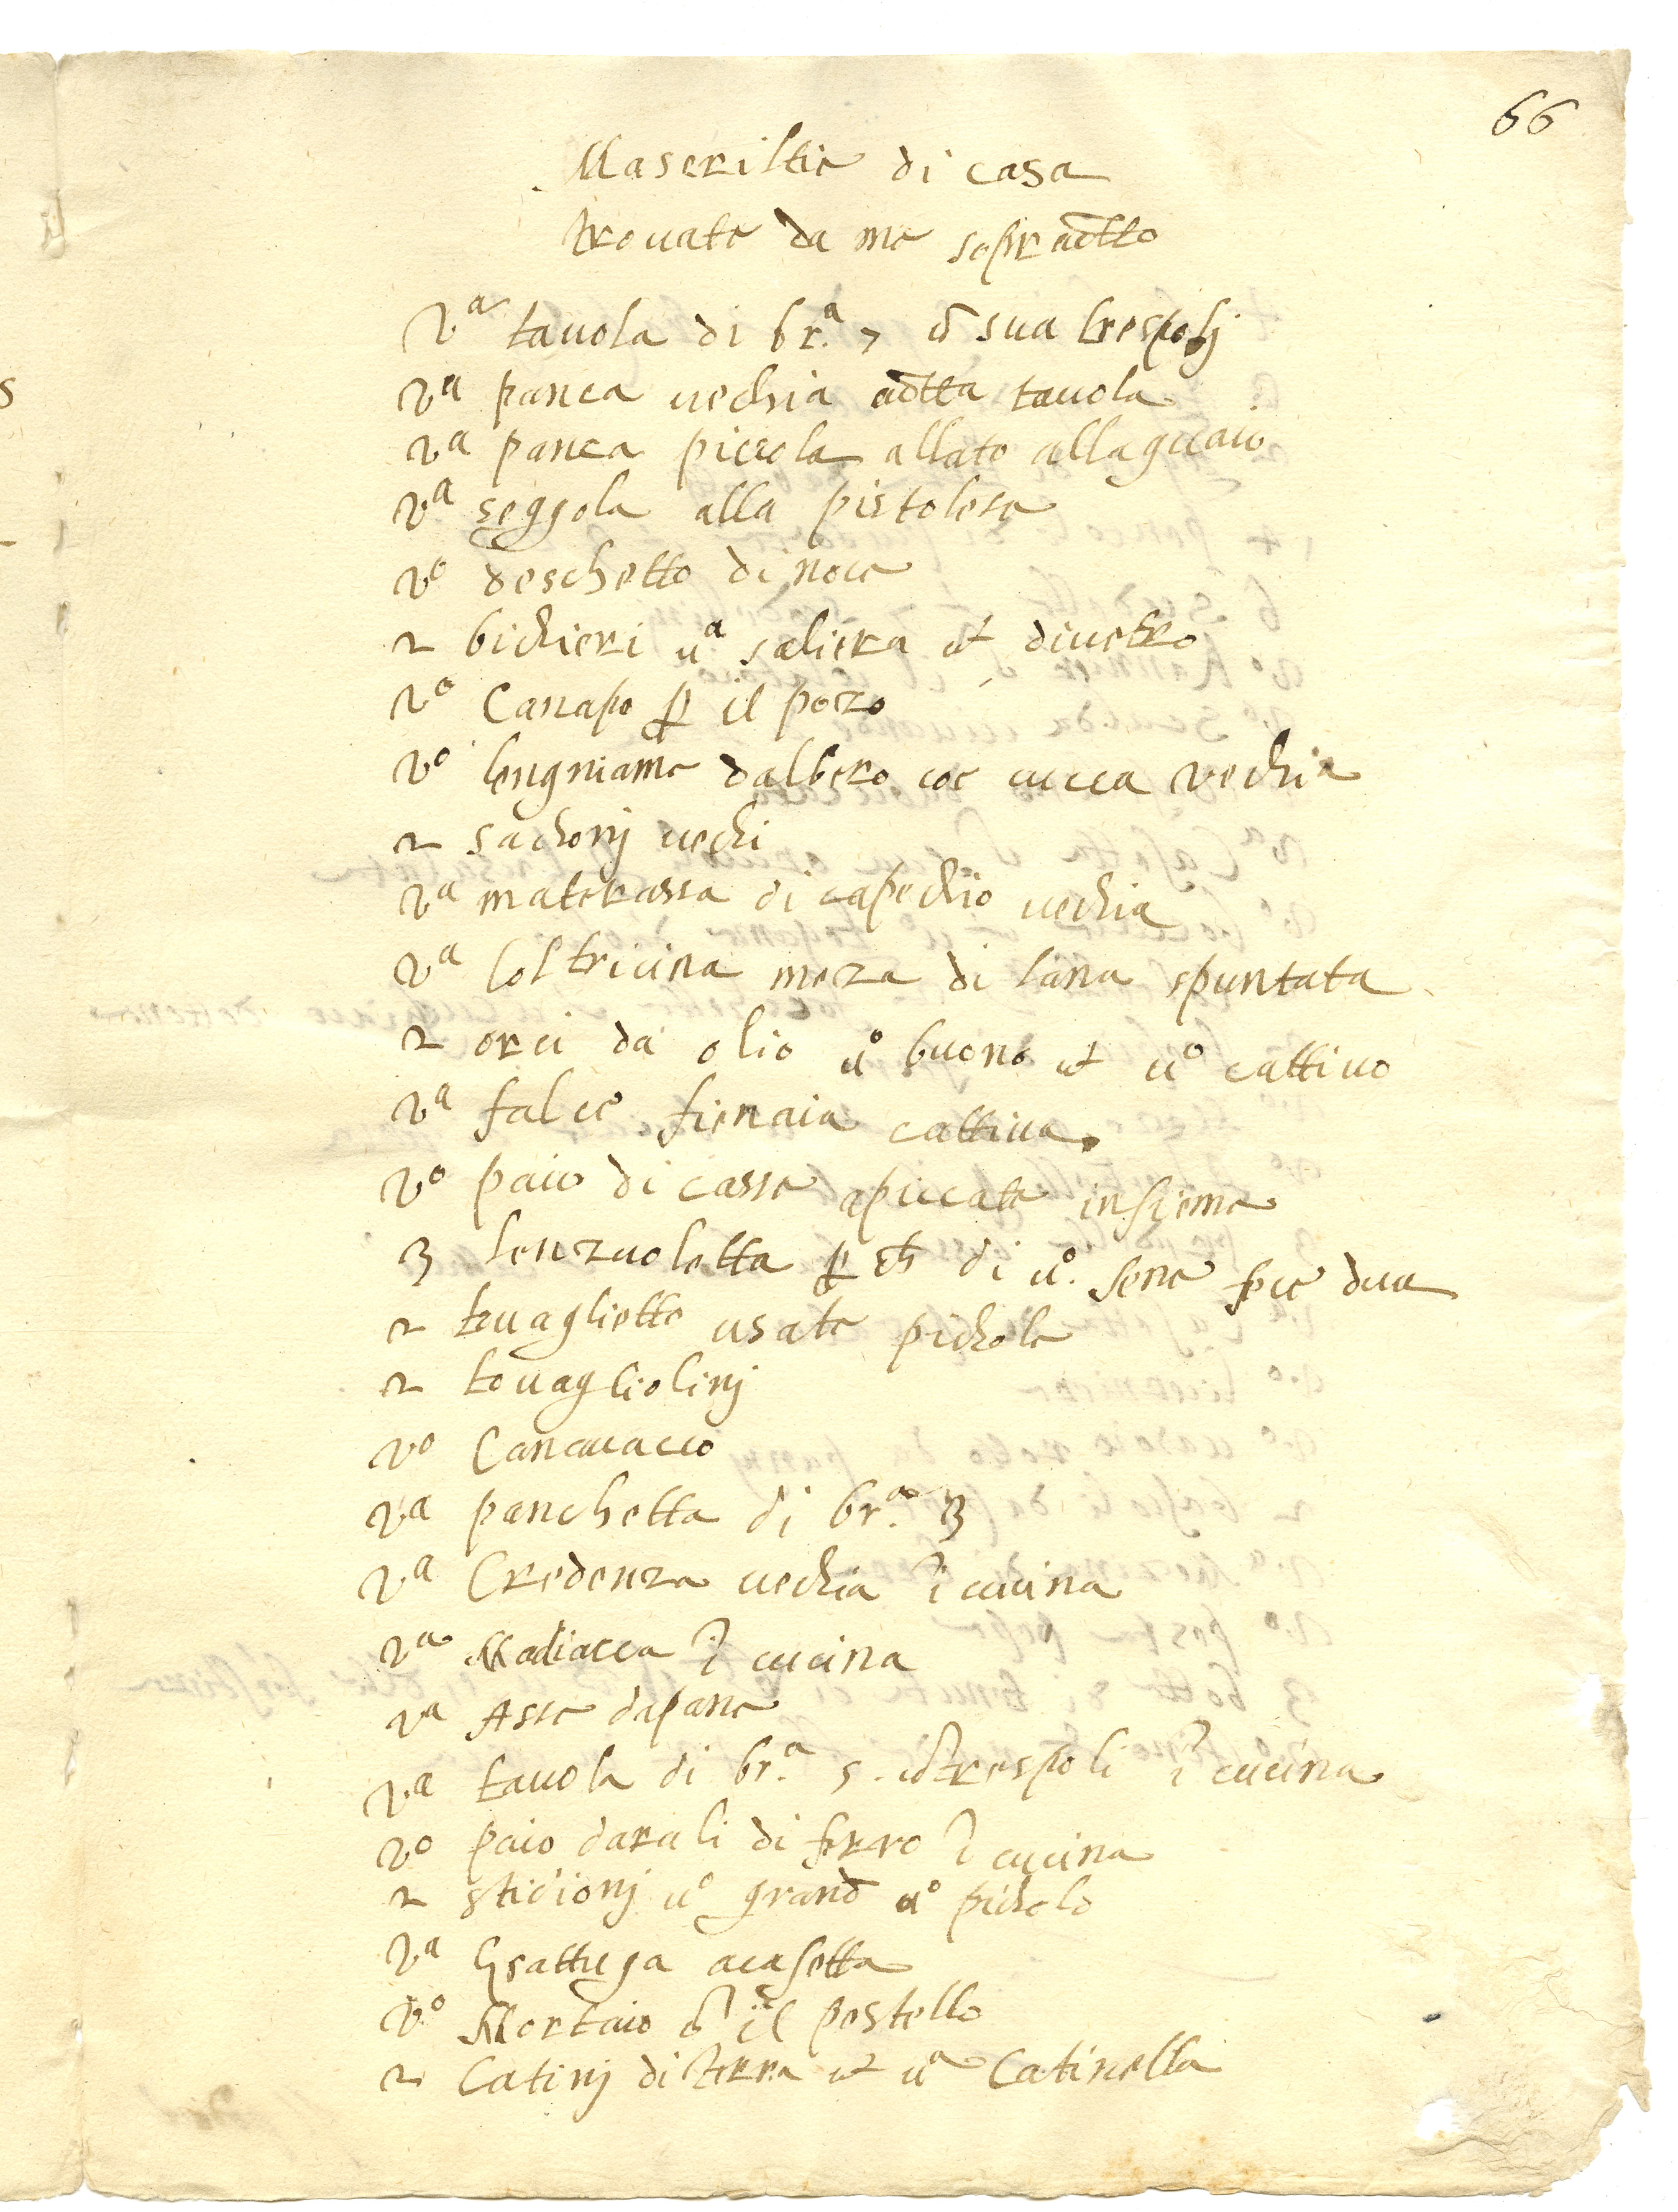 66
Maserittie di casa
trovate da me sopradtto
Va tavola di br.a 7 cō sua trespolj
va panca uechia adtta tavola
va panca piccola allato allaquaio
va seggola alla pistolese
vo deschetto di noce
2 bichieri ua saliera et diuetro
vo Canapo p il pozo
vo lengniame dalbero coe cucca vechia
2 sachonj uechi
va materassa di capechio uechia
va Coltricina meza di lana spuntata
2 orci da olio uo buono et uo cattiuo
va falce fienaia cattiua
vo paio di casse apiccate insieme
3 lenzuoletta p ch di uo. sene fece dua
2 tovagliette usate pichole
2 tovagliolinj
vo Canavaccio
va panchetta di br.a 3
va Credenza uechia ī cucina
va Madiacca ī cucina
va Asse dapane
va tavola di br.a 5. cō trespoli ī cucina
vo paio darali di ferro ī cucina
2 stidionj uo grand uo picholo
va Grattugia acasetta
vo Mortaio cō il pestello
2 Catinj di terra et ua Catinella